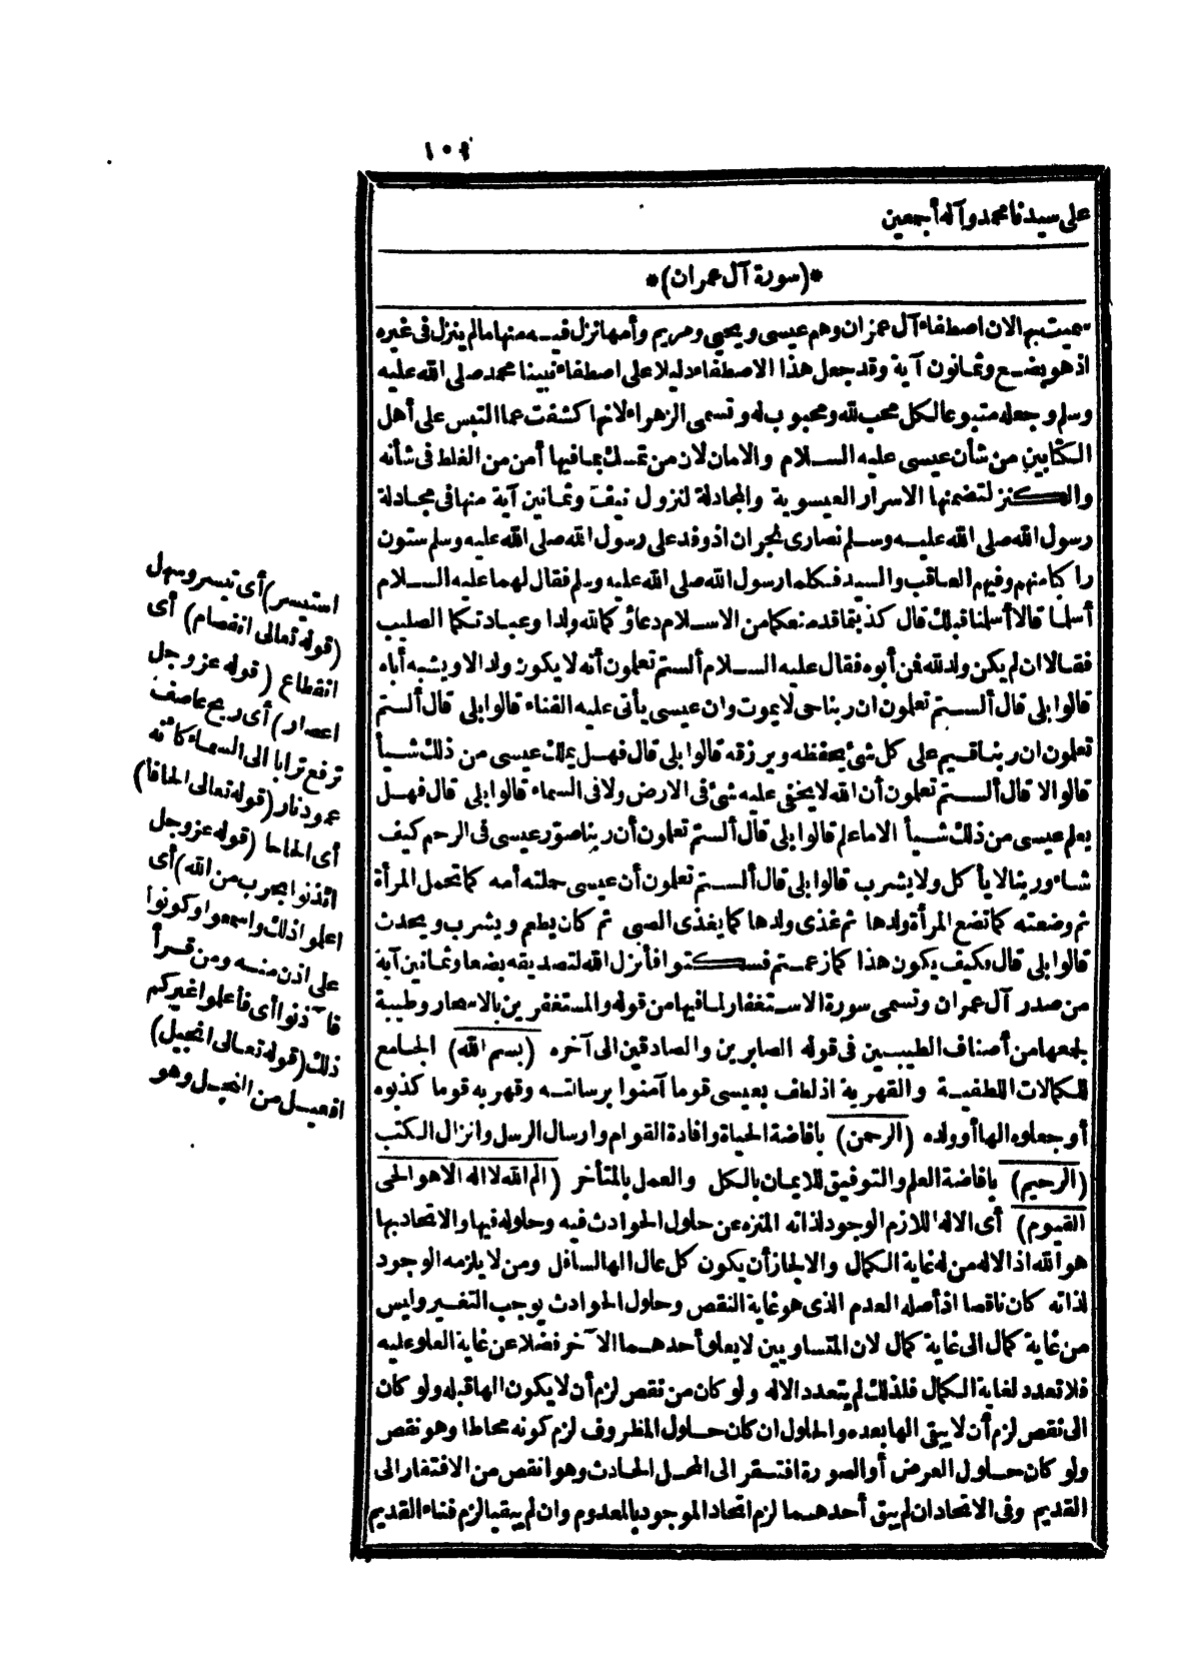 ١٠٢
على سيدنا محمد وآله أجمعين
*(سورة آل عمران)*
سميت بها لان اصطفاء آل عمران وهم عيسى ويحيى ومريم وأمها نزل فيه منها ما لم ينزل فى غيره
اذ هو بضع وثمانون آية وقد جعل هذا الاصطفاء دليلا على اصطفاء نبينا محمد صلى الله عليه
وسلم وجعله متبوعا لكل محب لله ومحبوب له وتسمى الزهراء لانها كشفت عما التبس على أهل
الكتابين من شأن عيسى عليه السلام والامان لان من تمسك بما فيها أمن من الغلط فى شأنه
والكنز لتضمنها الاسرار العيسوية والمجادلة لنزول نيف وثمانين آية منها فى مجادلة
رسول الله صلى الله عليه وسلم نصارى نجران اذ وفد على رسول الله صلى الله عليه وسلم ستون
راكبا منهم وفيهم العاقب والسيد فكلما رسول الله صلى الله عليه وسلم فقال لهما عليه السلام
أسلما قالا أسلمنا قبلك قال كذبتما قد منعكما من الاسلام دعاؤكما لله ولدا وعبادتكما الصليب
فقالا ان لم يكن ولد لله فمن أبوه فقال عليه السلام ألستم تعلمون أنه لا يكون ولد الا ويشبه أباه
قالوا بلى قال ألستم تعلمون ان ربنا حى لا يموت وان عيسى يأتى عليه الفناء قالوا بلى قال ألستم
تعلمون ان ربنا قيم على كل شئ يحفظه ويرزقه قالوا بلى قال فهل يملك عيسى من ذلك شيأ
قالوا لا قال ألستم تعلمون أن الله لا يخفى عليه شئ فى الارض ولا فى السماء قالوا بلى قال فهل
يعلم عيسى من ذلك شيأ الا ما علم قالوا بلى قال ألستم تعلمون أن ربنا صور عيسى فى الرحم كيف
شاء وربنا لا يأكل ولا يشرب قالوا بلى قال ألستم تعلمون أن عيسى حملته أمه كما تحمل المرأة
ثم وضعته كما تضع المرأة ولدها ثم غذى ولدها كما يغذى الصبى ثم كان يطعم ويشرب ويحدث
قالوا بلى قال فكيف يكون هذا كما زعمتم فسكتوا فأنزل الله لتصديقه بضعا وثمانين آية
من صدر آل عمران وتسمى سورة الاستغفار لما فيها من قوله والمستغفرين بالاسحار وطيبة
لجمعها من أصناف الطيبين فى قوله الصابرين والصادقين الى آخره (بسم الله) الجامع
للكمالات اللطفية والقهرية اذ لطف بعيسى قوما آمنوا برسالته وقهر به قوما كذبوه
أو جعلوه الها أو ولده (الرحمن) بافاضة الحياة وافادة القوام وارسال الرسل وانزال الكتب
(الرحيم) بافاضة العلم والتوفيق للايمان بالكل والعمل بالمتأخر (الم الله لا اله الا هو الحى
القيوم) أى الاله اللازم الوجود لذاته المنزه عن حلول الحوادث فيه وحلوله فيها والاتحاد بها
هو الله اذ الاله من له غاية الكمال والا لجاز أن يكون كل عال الها لسافل ومن لا يلزمه الوجود
لذاته كان ناقصا اذ أصله العدم الذى هو غاية النقص وحلول الحوادث يوجب التغير وليس
من غاية كمال الى غاية كمال لان المتساويين لا يعلو أحدهما الآخر فضلا عن غاية العلو عليه
فلا تعدد لغاية الكمال فلذلك لم يتعدد الاله ولو كان من نقص لزم أن لا يكون الها قبله ولو كان
الى نقص لزم أن لا يبقى الها بعده والحلول ان كان حلول المظروف لزم كونه محاطا وهو نقص
ولو كان حلول العرض أو الصورة افتقر الى المحل الحادث وهو انقص من الافتقار الى
القديم وفى الاتحاد ان لم يبق أحدهما لزم اتحاد الموجود بالمعدوم وان لم يبقيا لزم فناء القديم
استيسر) أى تيسر وسهل
(قوله تعالى انفصام) أى
انقطاع (قوله عز وجل
اعصار) أى ريح عاصف
ترفع ترابا الى السماء كأنه
عمود نار (قوله تعالى الحافا)
أى الحاحا (قوله عز وجل
ائذنوا بحرب من الله) أى
اعلموا ذلك واسمعوا وكونوا
على اذن منه ومن قرأ
فآذنوا أى فأعلموا غيركم
ذلك (قوله تعالى انجيل)
افعيل من النجل وهو